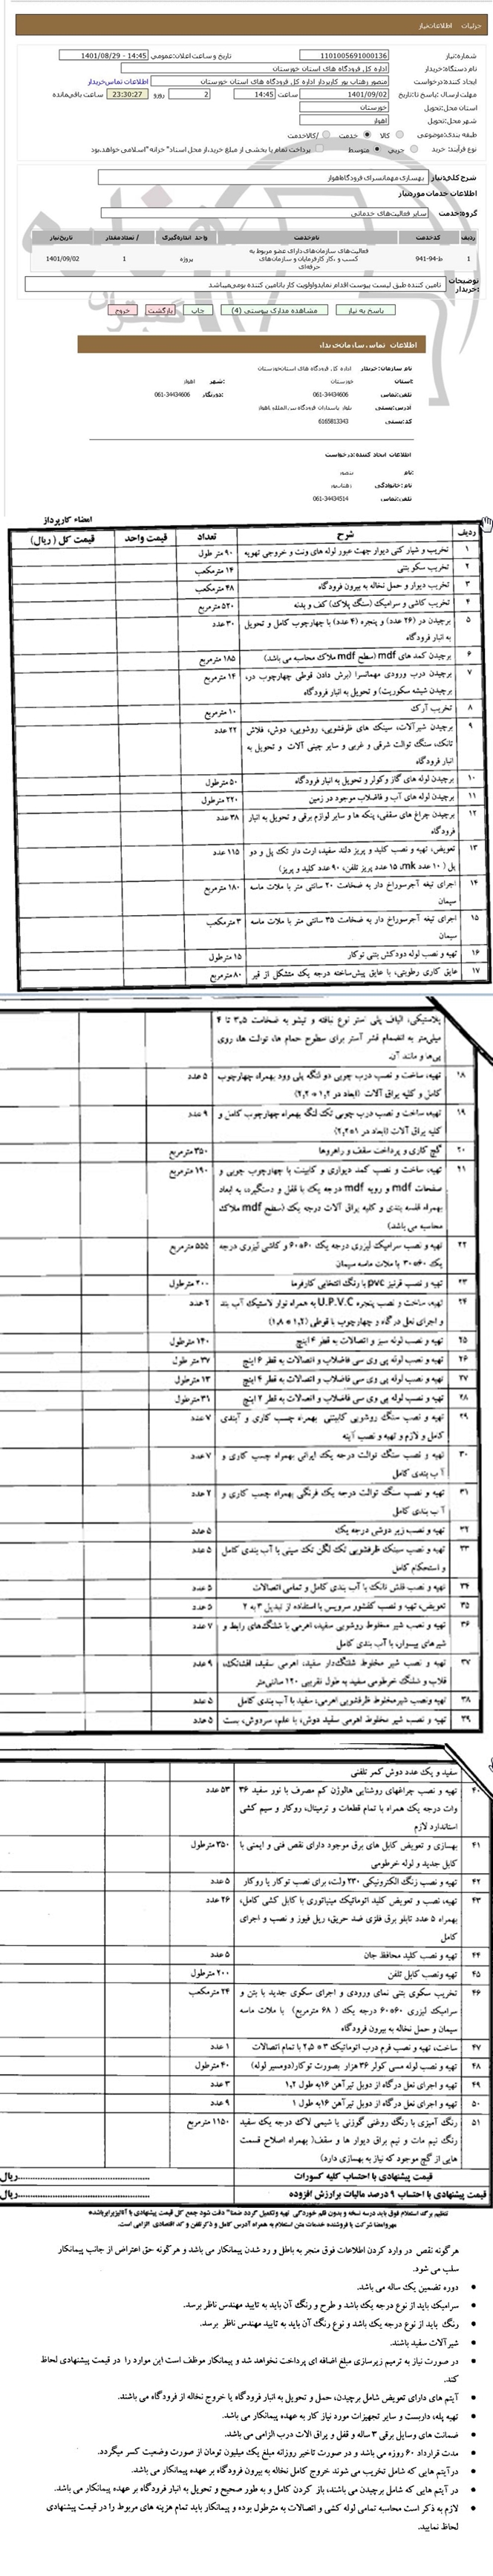 جزئیات اطلاعات نیاز
شماره نیاز: 1101005691000136
تاریخ و ساعت اعلان عمومی: 1401/08/29 - 14:45
نام دستگاه خریدار: اداره کل فرودگاه های استان خوزستان
ایجاد کننده درخواست: منصور رهتاب پور کارپرداز اداره کل فرودگاه های استان خوزستان
اطلاعات تماس خریدار
مهلت ارسال پاسخ تا تاریخ: 1401/09/02 ساعت 14:45 2 روز و 23:30:27 ساعت باقی مانده
استان محل تحویل: خوزستان
شهر محل تحویل: اهواز
طبقه بندی موضوعی: کالا خدمت کالا/خدمت
نوع فرآیند خرید: جزیی متوسط پرداخت تمام یا بخشی از مبلغ خرید،از محل "اسناد خزانه اسلامی" خواهد بود.
شرح کلی نیاز: بهسازی مهمانسرای فرودگاه اهواز
اطلاعات خدمات مورد نیاز
گروه خدمت: سایر فعالیت‌های خدماتی
ردیف کد خدمت نام خدمت واحد اندازه گیری تعداد / مقدار تاریخ نیاز
1 ط-94-941 فعالیت‌های سازمان‌های دارای عضو مربوط به کسب و کار، کارفرمایان و سازمان‌های حرفه‌ای پروژه 1 1401/09/02
توضیحات خریدار: تامین کننده طبق لیست پیوست اقدام نماید واولویت کار باتامین کننده بومی میباشد
پاسخ به نیاز مشاهده مدارک پیوستی (4) چاپ بازگشت خروج
اطلاعات تماس سازمان خریدار
نام سازمان خریدار: اداره کل فرودگاه های استان خوزستان
استان: خوزستان شهر: اهواز
تلفن تماس: 34434606-061 دورنگار: 34434606-061
آدرس پستی: بلوار پاسداران فرودگاه بین المللی اهواز
کد پستی: 6165813343
اطلاعات ایجاد کننده درخواست
نام: منصور
نام خانوادگی: رهتاب پور
تلفن تماس: 34434514-061
امضاء کارپرداز
ردیف شرح تعداد قیمت واحد قیمت کل ( ریال)
۱ تخریب و شیار کنی دیوار جهت عبور لوله های ونت و خروجی تهویه ۹۰ متر طول
۲ تخریب سکو بتنی ۱۴ مترمکعب
۳ تخریب دیوار و حمل نخاله به بیرون فرودگاه ۴۸ مترمکعب
۴ تخریب کاشی و سرامیک (سنگ پلاک) کف و بدنه ۵۲۰ مترمربع
۵ برچیدن در (۲۶ عدد) و پنجره (۴ عدد) با چهارچوب کامل و تحویل ۳۰ عدد
به انبار فرودگاه
۶ برچیدن کمد های mdf (سطح mdf ملاک محاسبه می باشد) ۱۸۵ مترمربع
۷ برچیدن درب ورودی مهمانسرا (برش دادن قوطی چهارچوب در، ۱۴ مترمربع
برچیدن شیشه سکوریت) و تحویل به انبار فرودگاه
۸ تخریب آرک ۱۰ مترمربع
۹ برچیدن شیرآلات، سینک های ظرفشویی، روشویی، دوش، فلاش ۲۲ عدد
تانک، سنگ توالت شرقی و غربی و سایر چینی آلات و تحویل به
انبار فرودگاه
۱۰ برچیدن لوله های گاز وکولر و تحویل به انبار فرودگاه ۵۰ مترطول
۱۱ برچیدن لوله های آب و فاضلاب موجود در زمین ۲۲۰ مترطول
۱۲ برچیدن چراغ های سقفی، پنکه ها و سایر لوازم برقی و تحویل به انبار ۳۸ عدد
فرودگاه
۱۳ تعویض، تهیه و نصب کلید و پریز دلند سفید، ارت دار تک پل و دو ۱۱۵ عدد
پل ( ۱۰ عدد mk، ۱۵ عدد پریز تلفن، ۹۰ عدد کلید و پریز)
۱۴ اجرای تیغه آجرسوراخ دار به ضخامت ۲۰ سانتی متر با ملات ماسه ۱۸۰ مترمربع
سیمان
۱۵ اجرای تیغه آجرسوراخ دار به ضخامت ۳۵ سانتی متر با ملات ماسه ۳ مترمکعب
سیمان
۱۶ تهیه و نصب لوله دودکش بتنی توکار ۱۵ مترطول
۱۷ عایق کاری رطوبتی، با عایق پیش‌ساخته درجه یک متشکل از قیر ۸۰ مترمربع
پلاستیکی، الیاف پلی استر نوع نبافته و تیشو به ضخامت ۳,۵ تا ۴
میلی‌متر به انضمام قشر آستر برای سطوح حمام ها، توالت ها، روی
پی‌ها و مانند آن.
۱۸ تهیه، ساخت و نصب درب چوبی دو لنگه پلی وود بهمراه چهارچوب ۵ عدد
کامل و کلیه یراق آلات (ابعاد در ۱,۲ * ۲,۲)
۱۹ تهیه، ساخت و نصب درب چوبی تک لنگه بهمراه چهارچوب کامل و ۹ عدد
کلیه یراق آلات (ابعاد در ۱*۲,۲)
۲۰ گچ کاری و پرداخت سقف و راهروها ۳۵۰ مترمربع
۲۱ تهیه، ساخت و نصب کمد دیواری و کابینت با چهارچوب چوبی و ۱۹۰ مترمربع
صفحات mdf و رویه mdf درجه یک با قفل و دستگیره، به ابعاد
بهمراه قفسه بندی و کلیه یراق آلات درجه یک (سطح mdf ملاک
محاسبه می باشد)
۲۲ تهیه و نصب سرامیک لیزری درجه یک ۶۰*۶۰ و کاشی لیزری درجه ۵۵۵ مترمربع
یک ۶۰*۳۰ با ملات ماسه سیمان
۲۳ تهیه و نصب قرنیز pvc با رنگ انتخابی کارفرما ۲۰۰ مترطول
۲۴ تهیه، ساخت و نصب پنجره U.P.V.C به همراه نوار لاستیک آب بند ۲ عدد
و اجرای نعل درگاه و چهارچوب با قوطی (۱,۲ * ۱,۸)
۲۵ تهیه و نصب لوله سبز و اتصالات به قطر ۴ اینچ ۱۴۰ مترطول
۲۶ تهیه و نصب لوله پی وی سی فاضلاب و اتصالات به قطر ۶ اینچ ۳۷ متر طول
۲۷ تهیه و نصب لوله پی وی سی فاضلاب و اتصالات به قطر ۴ اینچ ۱۳ مترطول
۲۸ تهیه و نصب لوله پی وی سی فاضلاب و اتصالات به قطر ۲ اینچ ۳۱ مترطول
۲۹ تهیه و نصب سنگ روشویی کابینتی بهمراه چسب کاری و آبندی ۷ عدد
کامل و لازم و تهیه و نصب آینه
۳۰ تهیه و نصب سنگ توالت درجه یک ایرانی بهمراه چسب کاری و ۷ عدد
آب بندی کامل
۳۱ تهیه و نصب سنگ توالت درجه یک فرنگی بهمراه چسب کاری و ۲ عدد
آب بندی کامل
۳۲ تهیه و نصب زیر دوشی درجه یک ۵ عدد
۳۳ تهیه و نصب سینک ظرفشویی تک لگن تک سینی با آب بندی کامل ۵ عدد
و استحکام کامل
۳۴ تهیه و نصب فلش تانک با آب بندی کامل و تمامی اتصالات ۵ عدد
۳۵ تعویض، تهیه و نصب کفشور سرویس با استفاده از تبدیل ۳ به ۲ ۵ عدد
۳۶ تهیه و نصب شیر مخلوط روشویی سفید، اهرمی با شلنگ‌های رابط و ۷ عدد
شیرهای پیسوار، با آب بندی کامل
۳۷ تهیه و نصب شیر مخلوط شلنگ‌دار سفید، اهرمی سفید، افشانک، ۹ عدد
قلاب و شلنگ خرطومی سفید به طول تقریبی ۱۲۰ سانتی‌متر
۳۸ تهیه ونصب شیرمخلوط ظرفشویی اهرمی، سفید با آب بندی کامل ۵ عدد
۳۹ تهیه و نصب شیر مخلوط اهرمی سفید دوش، با علم، سردوش، بست ۵ عدد
سفید و یک عدد دوش کمر تلفنی
۴۰ تهیه و نصب چراغهای روشنایی هالوژن کم مصرف با نور سفید ۳۶ ۵۳ عدد
وات درجه یک همراه با تمام قطعات و ترمینال، روکار و سیم کشی
استاندارد لازم
۴۱ بهسازی و تعویض کابل های برق موجود دارای نقص فنی و ایمنی با ۳۵۰ مترطول
کابل جدید و لوله خرطومی
۴۲ تهیه و نصب زنگ الکترونیکی ۲۳۰ ولت، برای نصب توکار یا روکار ۵ عدد
۴۳ تهیه، نصب و تعویض کلید اتوماتیک مینیاتوری با کابل کشی کامل، ۲۶ عدد
بهمراه ۵ عدد تابلو برق فلزی ضد حریق، ریل فیوز و نصب و اجرای
کامل
۴۴ تهیه و نصب کلید محافظ جان ۵ عدد
۴۵ تهیه ونصب کابل تلفن ۲۰۰ مترطول
۴۶ تخریب سکوی بتنی نمای ورودی و اجرای سکوی جدید با بتن و ۲۴ مترمکعب
سرامیک لیزری ۶۰*۶۰ درجه یک ( ۶۸ مترمربع) با ملات ماسه
سیمان و حمل نخاله به بیرون فرودگاه
۴۷ ساخت، تهیه و نصب فرم درب اتوماتیک ۳ * ۲,۵ با تمام اتصالات ۱ عدد
۴۸ تهیه و نصب لوله مسی کولر ۳۶ هزار بصورت توکار(دومسیر لوله) ۴۰ مترطول
۴۹ تهیه و اجرای نعل درگاه از دوبل تیرآهن ۱۶ به طول ۱,۲ ۳ عدد
۵۰ تهیه و اجرای نعل درگاه از دوبل تیرآهن ۱۶ به طول ۱ ۹ عدد
۵۱ رنگ آمیزی با رنگ روغنی گوزنی یا شیمی لاک درجه یک سفید ۱۱۵۰ مترمربع
رنگ نیم مات و نیم براق دیوار ها و سقف( بهمراه اصلاح قسمت
هایی از گچ موجود که نیاز به بهسازی دارد)
قیمت پیشنهادی با احتساب کلیه کسورات ................ریال
قیمت پیشنهادی با احتساب ۹ درصد مالیات برارزش افزوده ................ریال
تنظیم برگه استعلام فوق باید درسه نسخه و بدون قلم خوردگی تهیه وتکمیل گردد ضمنا" دقت شود جمع کل قیمت پیشنهادی با آنالیزبرابرباشده
مهروامضا شرکت یا فروشنده خدمات متن استعلام به همراه آدرس کامل و ذکرتلفن و کد اقتصادی الزامی است.
هرگونه نقص در وارد کردن اطلاعات فوق منجر به باطل و رد شدن پیمانکار می باشد و هرگونه حق اعتراض از جانب پیمانکار
سلب می شود.
• دوره تضمین یک ساله می باشد.
• سرامیک باید از نوع درجه یک باشد و طرح و رنگ آن باید به تایید مهندس ناظر برسد.
• رنگ باید از نوع درجه یک باشد و نوع رنگ آن باید به تایید مهندس ناظر برسد.
• شیرآلات سفید باشند.
• در صورت نیاز به ترمیم زیرسازی مبلغ اضافه ای پرداخت نخواهد شد و پیمانکار موظف است این موارد را در قیمت پیشنهادی لحاظ
کند.
• آیتم های دارای تعویض شامل برچیدن، حمل و تحویل به انبار فرودگاه یا خروج نخاله از فرودگاه می باشند.
• تهیه پله، داربست و سایر تجهیزات مورد نیاز کار به عهده پیمانکار می باشد.
• ضمانت های وسایل برقی ۳ ساله و قفل و یراق الات درب الزامی می باشد.
• مدت قرارداد ۶۰ روزه می باشد و در صورت تاخیر روزانه مبلغ یک میلیون تومان از صورت وضعیت کسر میگردد.
• درآیتم هایی که شامل تخریب می شوند خروج کامل نخاله به بیرون فرودگاه بر عهده پیمانکار می باشد.
• در آیتم هایی که شامل برچیدن می باشند، باز کردن کامل و به طور صحیح و تحویل به انبار فرودگاه بر عهده پیمانکار می باشد.
• لازم به ذکر است محاسبه تمامی لوله کشی و اتصالات به مترطول بوده و پیمانکار باید تمام هزینه های مربوط را در قیمت پیشنهادی
لحاظ نمایید.